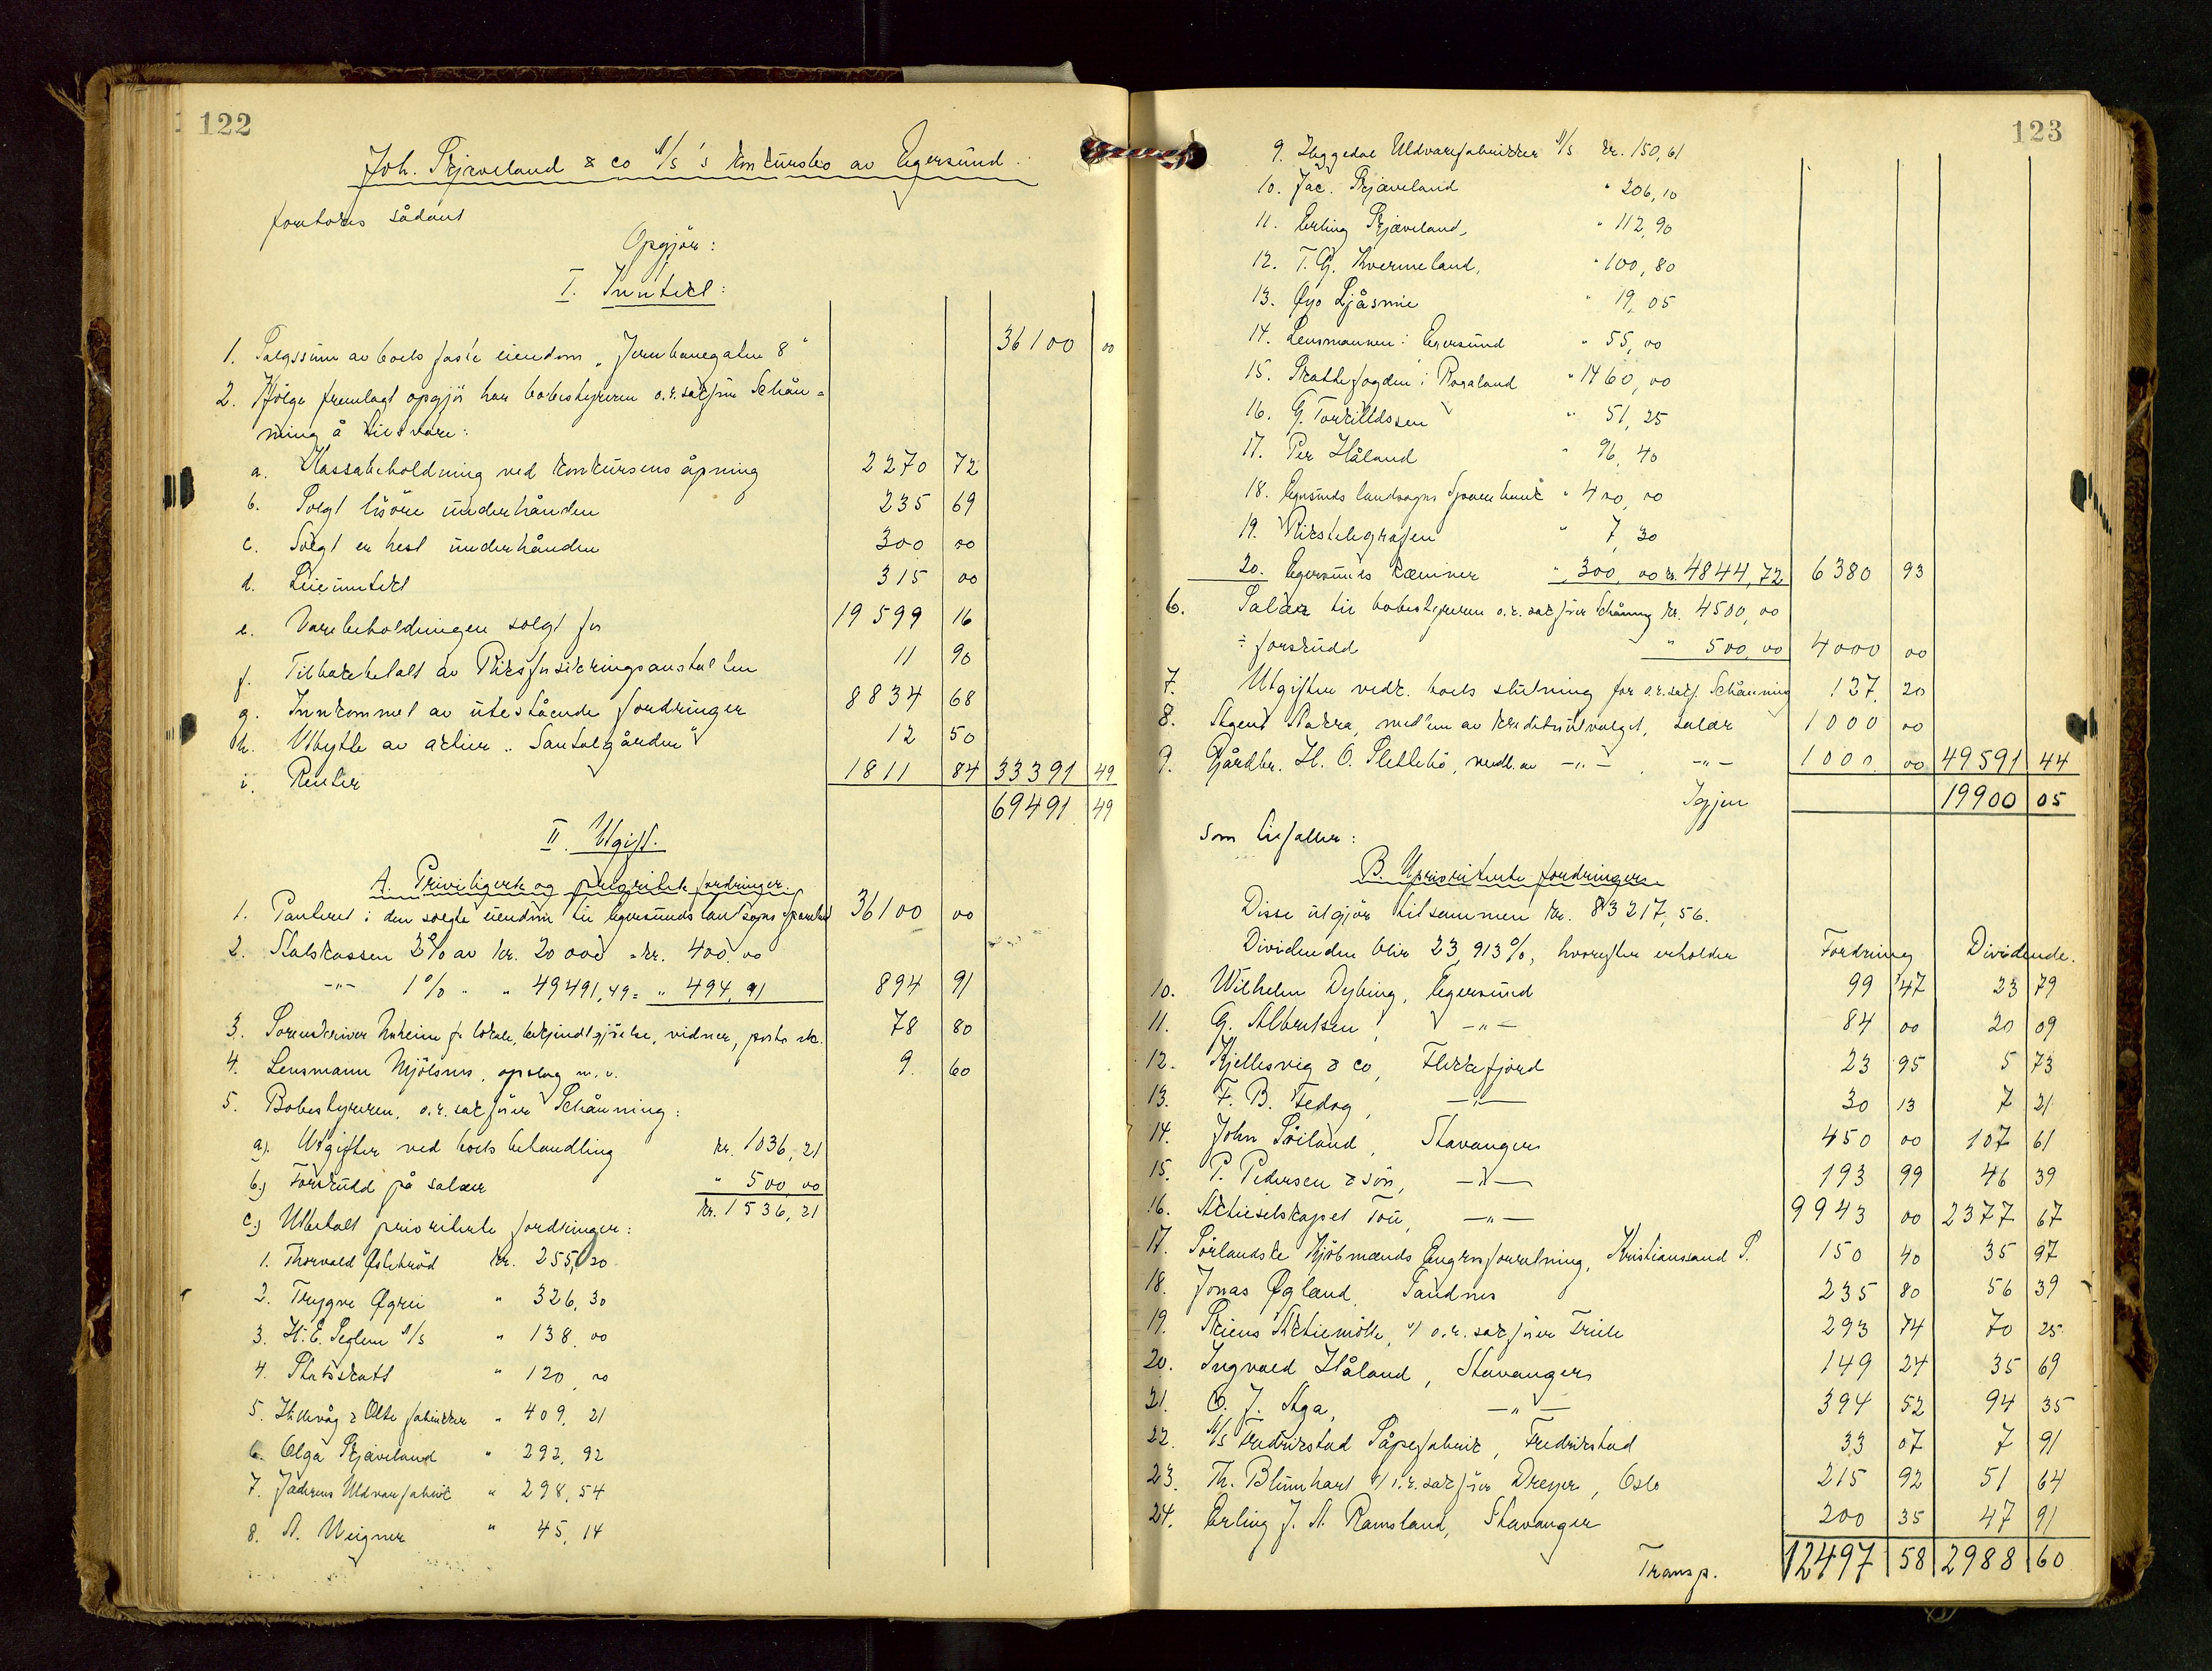 122
Joh. Skjæveland & co A/S's konkursbo av Egersund.
foretokes sådant
Opgjör:
I. Inntekt:
1. Salgssum av boets faste eiendom „Jernbanegaten 8" 36100 00
2. Ifölge fremlagt opgjör har bobestyreren o.r.sakförer Schån=
ning å tilsvare:
a. Kassabeholdning ved konkursens åpning 2270 72
b. Solgt lösöre underhånden 235 69
c. Solgt en hest underhånden 300 00
d. Leieinntekt 315 00
e. Varebeholdningen solgt for 19599 16
f. Tilbakebetalt av Riksforsikringsanstalten 11 90
g. Innkommet av utestående fordringer 8834 68
h. Utbytte av aktier „Santalgården" 12 50
i. Renter 1811 84 33391 49
69491 49
II. Utgift.
A. Priviligerte og prioriterte fordringer.
1. Panteret i den solgte eiendom til Egersunds landsogns Sparebank 36100 00
2. Statskassen 2% av kr. 20 000 = kr. 400.00
-"- 1% " " 49491,49 = " 494,91 894 91
3. Sorenskriver Aarheim for lokale, bekjendtgjörelse, vidner, porto etc. 78 80
4. Lensmann Mjölsnes, opslag m.v. 9. 60
5. Bobestyreren, o.r.sakförer Schånning:
a). Utgifter ved boets behandling kr. 1036,21
b.) Forskudd på salær " 500,00
kr. 1536,21
c.) Utbetalt prioriterte fordringer:
1. Thorvald Østebröd kr. 255,20
2. Trygve Øgrei " 326,30
3. H. E. Seglem A/S " 138.00
4. Statsskatt " 120,00
5. Hillevåg & Olte fabrikker " 409,21
6. Olga Skjæveland " 292,92
7. Jæderens Uldvarefabrik " 298,54
8. A. Weigner " 45,14
123
9. Heggedal Uldvarefabrikker A/S kr. 150,61
10. Jac. Skjæveland " 206,10
11. Erling Skjæveland, " 112,90
12. T. G. Kverneland, " 100,80
13. Gyo Ljåsmie " 19,05
14. Lensmannen i Egersund " 55,00
15. Skattefogden i Rogaland " 1460,00
16. G. Torkilldssen " 51,25
17. Per Håland " 96,40
18. Egersunds landsogns Sparebank " 400,00
19. Rikstelegrafen " 7,30
20. Egersunds kæmner " 300,00 kr. 4844,72 6380 93
6. Salær til bobestyreren o.r.sakförer Schånning kr. 4500,00
÷ forskudd " 500,00 4000 00
7. Utgifter vedk. boets slutning for o.r.sakf. Schånning 127 20
8. Agent Stakra, medlem av kreditorutvalget, salær 1000 00
9. Gårdbr. H. O. Slettebö, medl. av -"- -"- 1000 00 49591 44
Igjen 19900 05
som tilfaller:
B. Uprioriterte fordringer.
Disse utgjör tilsammen kr. 83217,56.
Dividenden blir 23,913%, hvorefter erholder Fordring Dividende.
10. Wilhelm Dybing, Egersund 99 47 23 79
11. G. Albretsen, -"- 84 00 20 09
12. Kjellesvig & co, Flekkefjord 23 95 5 73
13. F. B. Fedog, -"- 30 13 7 21
14. John Söiland, Stavanger 450 00 107 61
15. P. Pedersen & sön, -"- 193 99 46 39
16. Aktieselskapet Tou, -"- 9943 00 2377 67
17. Sörlandske Kjöbmænds Engrosforretning, Kristianssand S. 150 40 35 97
18. Jonas Øgland, Sandnes 235 80 56 39
19. Skiens Aktiemölle, v/ o.r.sakförer Friele 293 74 70 25
20. Ingvald Håland, Stavanger 149 24 35 69
21. O. J. Aga, -"- 394 52 94 35
22. A/S Fredrikstad Såpefabrik, Fredrikstad 33 07 7 91
23. Th. Blumhart v/ o.r.sakförer Dreyer, Oslo 215 92 51 64
24. Erling J. A. Ramsland, Stavanger 200 35 47 91
Transp. 12497 58 2988 60